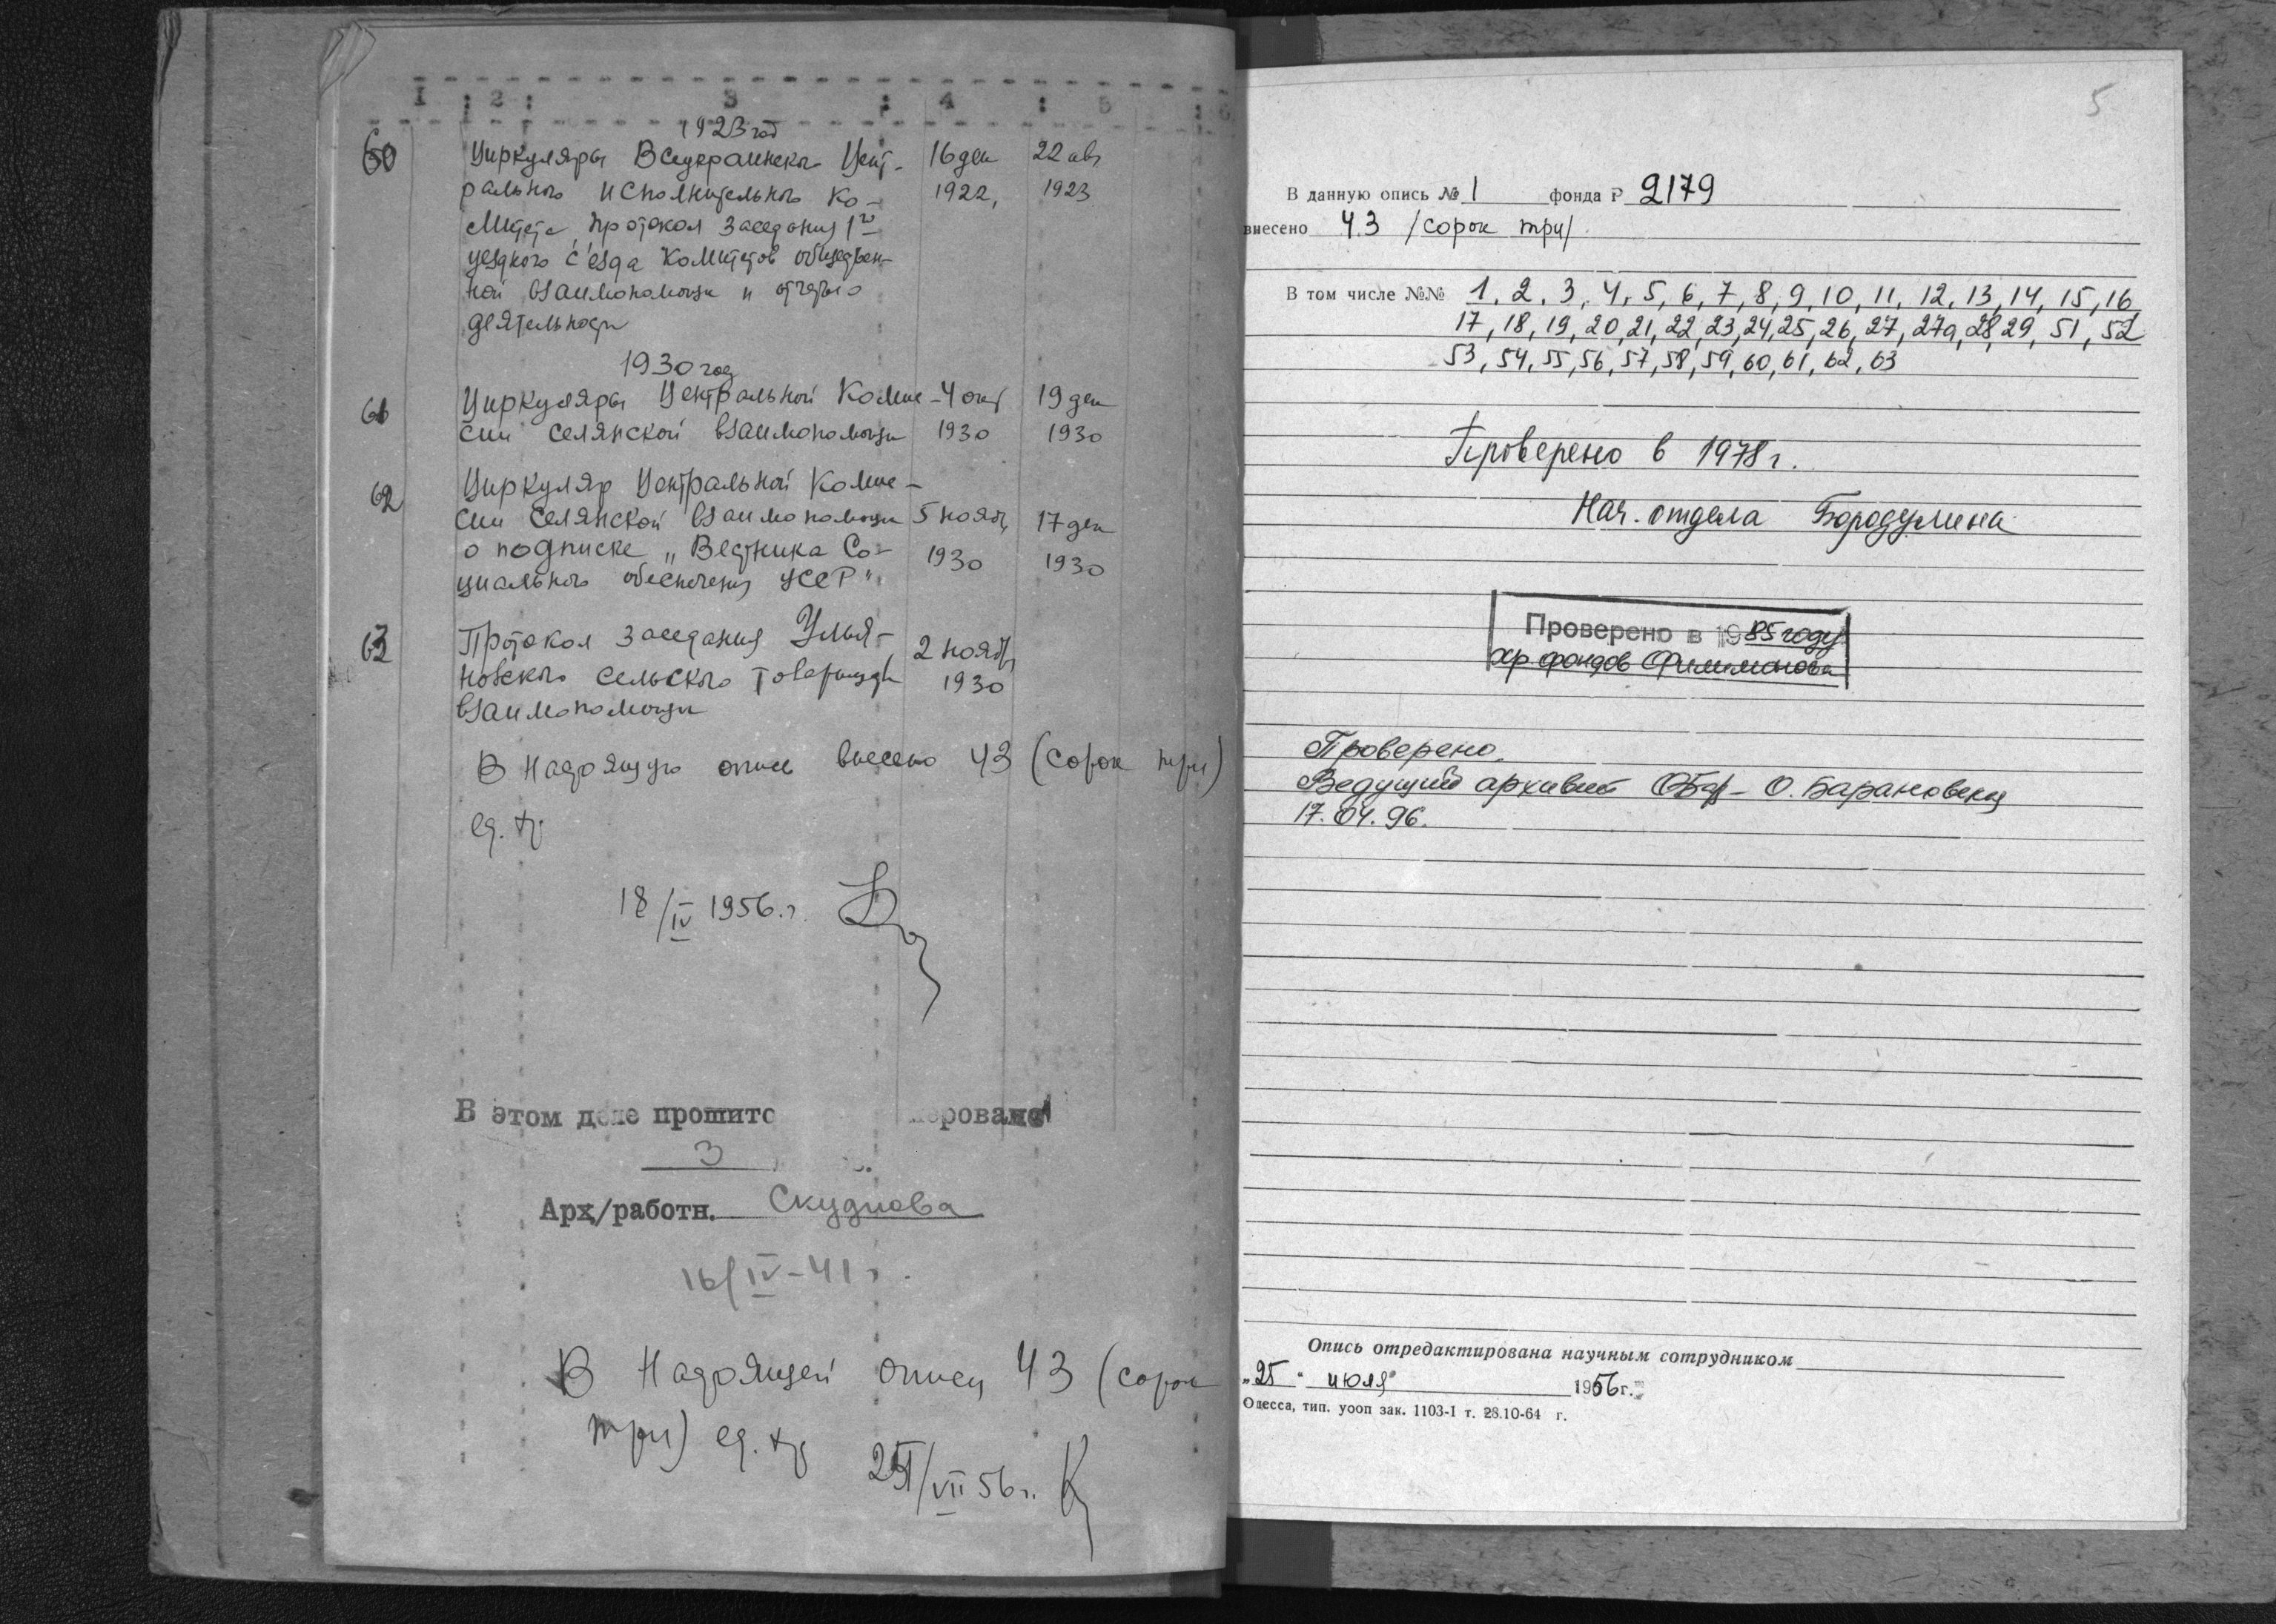 1 : 2 : 3 : 4 : 5 : 6
1923 год
60 Циркуляры Всеукраинского Цент- 16 дек 22 авг
рального исполнительного Ко- 1922, 1923
митета, протокол заседания 1го
уездного с'езда комитетов обществен-
ной взаимопомощи и отчеты о
деятельности
1930 год
61 Циркуляры Центральной Комис- 4 окт 19 дек
сии селянской взаимопомощи 1930 1930
62 Циркуляр Центральной Комис-
сии селянской взаимопомощи 5 нояб, 17 дек
о подписке „Вестника Со- 1930 1930
циального обеспечения УССР"
63 Протокол заседания Улья- 2 нояб,
новского сельского товарищества 1930
взаимопомощи
В настоящую опись внесено 43 (сорок три)
ед. хр
18/IV 1956.г.
В этом деле прошито
3
Арх/работн. Скуднова
16/IV-41 г.
В настоящей описи 43 (сорок
три) ед. хр
25/VII 56 г.
5
В данную опись № 1 фонда Р 2179
внесено 43 /сорок три/
В том числе №№ 1, 2, 3, 4, 5, 6, 7, 8, 9, 10, 11, 12, 13, 14, 15, 16,
17, 18, 19, 20, 21, 22, 23, 24, 25, 26, 27, 27а, 28, 29, 51, 52
53, 54, 55, 56, 57, 58, 59, 60, 61, 62, 63
Проверено в 1978 г.
Нач. отдела Бородулина
Проверено в 1985 году
хр фондов Филимонова
Проверено.
Ведущий архивист О. Барановская
17.04.96.
Опись отредактирована научным сотрудником
„25" июля 1956 г.
Одесса, тип. уооп зак. 1103-1 т. 28.10-64 г.